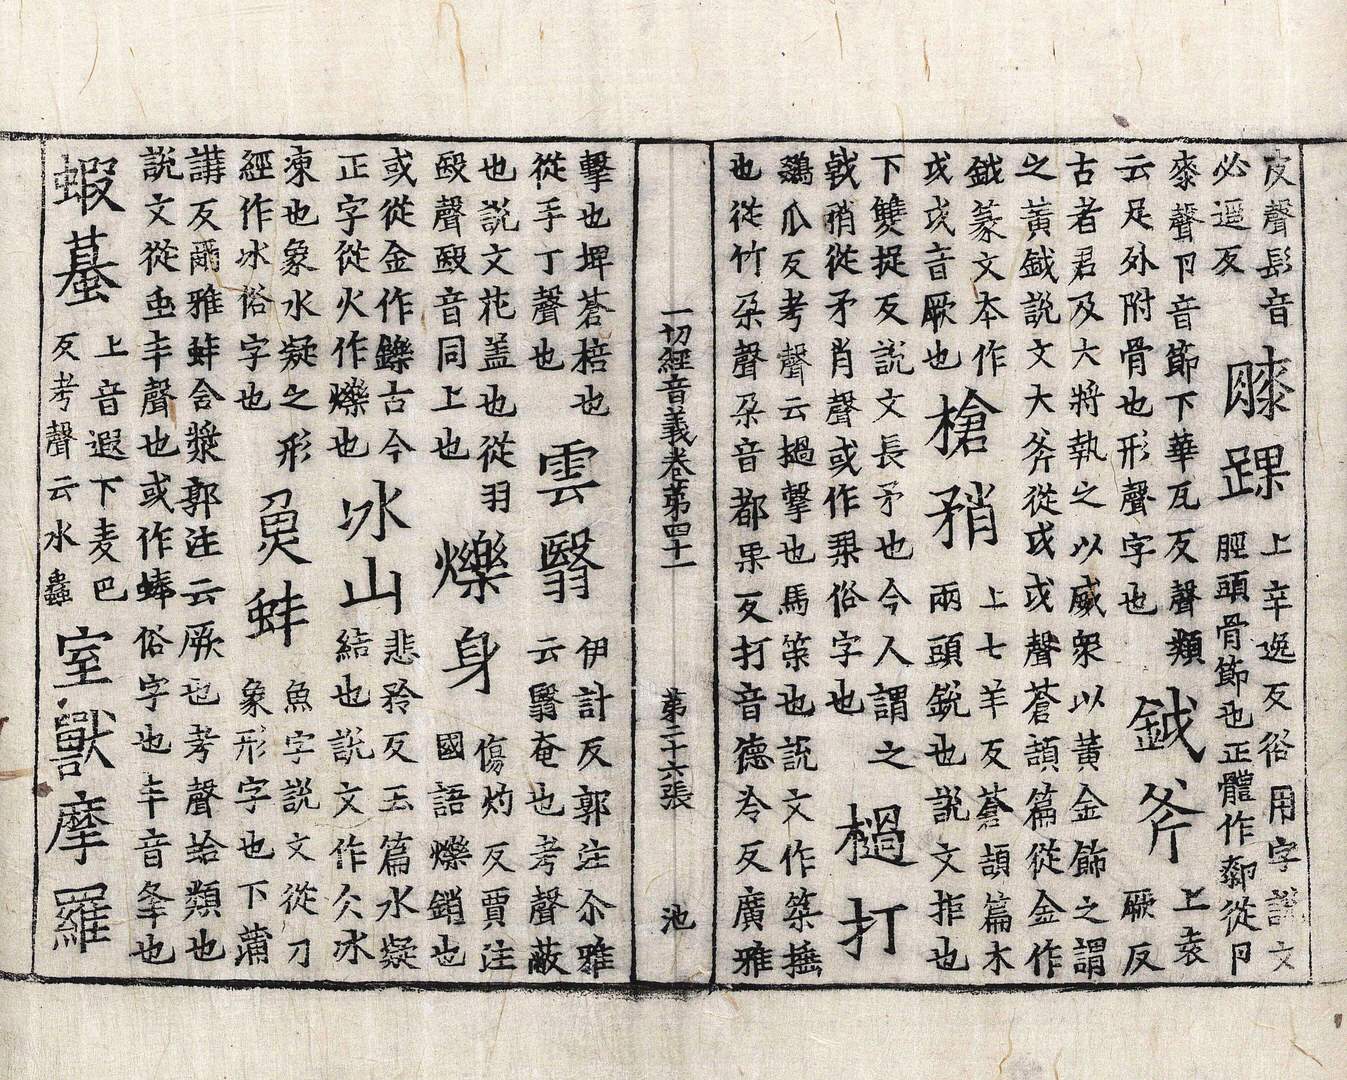 皮聲髟音
必遥反
膝踝
上辛逸反俗用字說文
脛頭骨節也正體作厀從卪
桼聲卪音節下華瓦反聲類
云足外附骨也形聲字也
鉞斧
上袁
厥反
古者君及大將執之以威眾以黃金飾之謂
之黃鉞說文大斧從戉戉聲蒼頡篇從金作
鉞篆文本作
戉戉音厥也
槍矟
上七羊反蒼頡篇木
兩頭銳也說文拒也
下雙捉反說文長矛也今人謂之
戟矟從矛肖聲或作槊俗字也
檛打
瓜反考聲云撾擊也馬策也說文作築捶
也從竹朶聲朶音都果反打音德冷反廣雅
一切經音義卷第四十一 第二十六張 池
擊也埤蒼棓也
從手丁聲也
雲翳
伊計反郭注尒雅
云翳奄也考聲蔽
也說文花盖也從羽
殹聲殹音同上也
爍身
傷灼反賈注
國語爍銷也
或從金作鑠古今
正字從火作爍也
冰山
悲矜反玉篇水凝
結也說文作仌冰
凍也象水凝之形
經作冰俗字也
魚蚌
魚字說文從刀
象形字也下蒲
講反爾雅蚌含漿郭注云厥也考聲蛤類也
說文從虫丰聲也或作蜯俗字也丰音峯也
蝦蟇
上音遐下麦巴
反考聲云水蟲
室獸摩羅